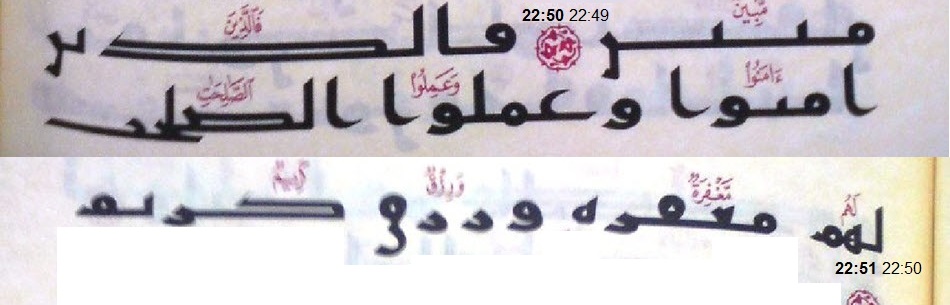 مُّبِينٌ 22:50 22:49 فَالَّذِينَ
مبين فالذين
ءَامَنُوا وَعَمِلُوا الصَّلِحَتِ
امنوا وعملوا الصلحت
لَهُم مَّغْفِرَةٌ وَرِزْقٌ كَرِيمٌ
لهم مغفره ورزق كريم
22:51 22:50